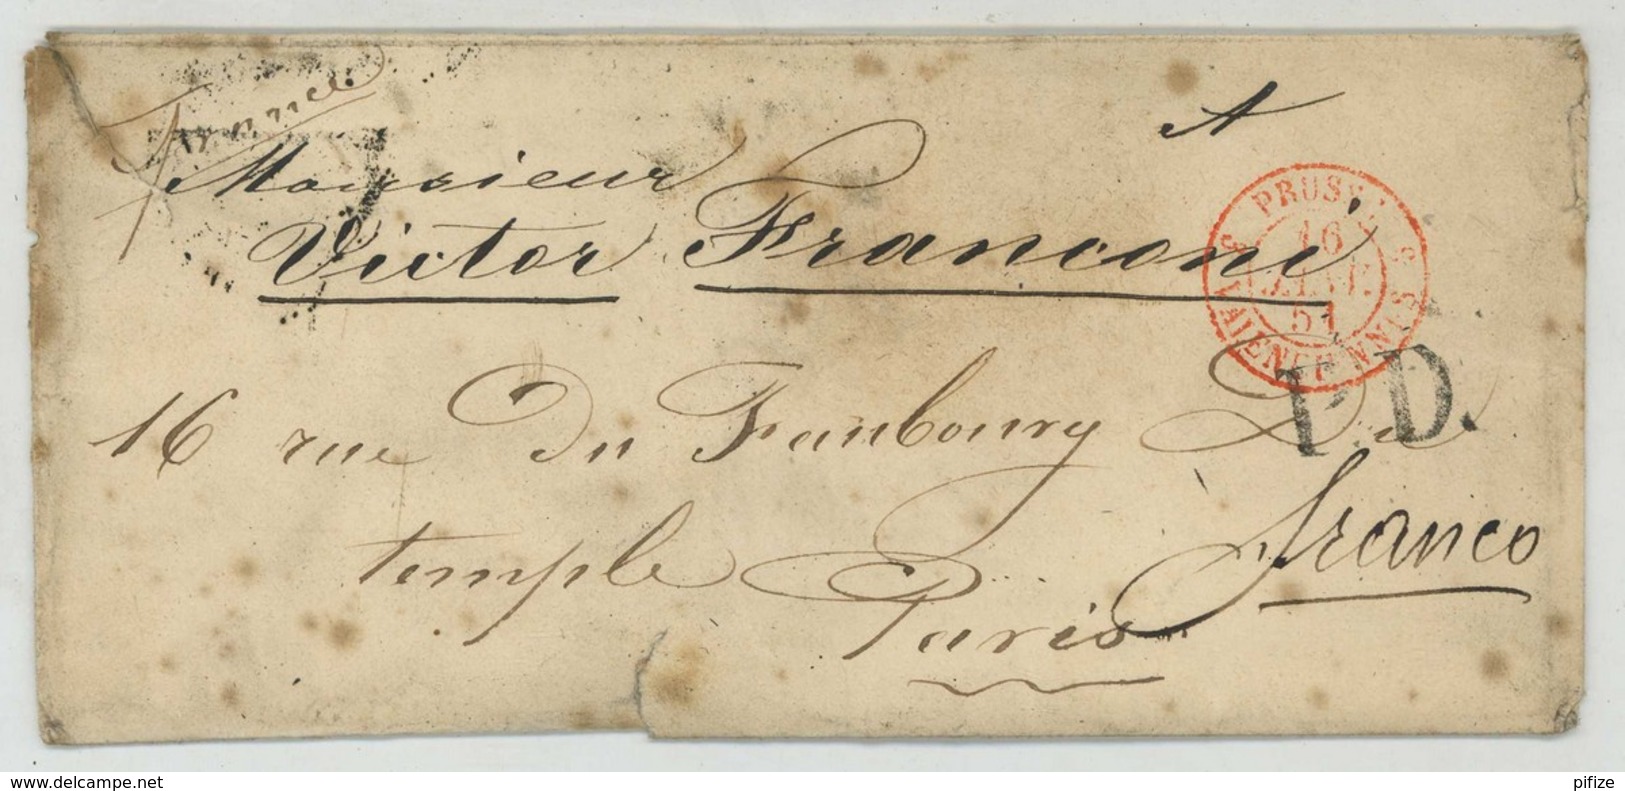 France
A
Monsieur
Victor Franconi
PRUSSE
3 VALENCIENNES 3
16
JANV.
51
P.D.
16 rue Du Faubourg Du
temple
franco
Paris
www.delcampe.net
pifize